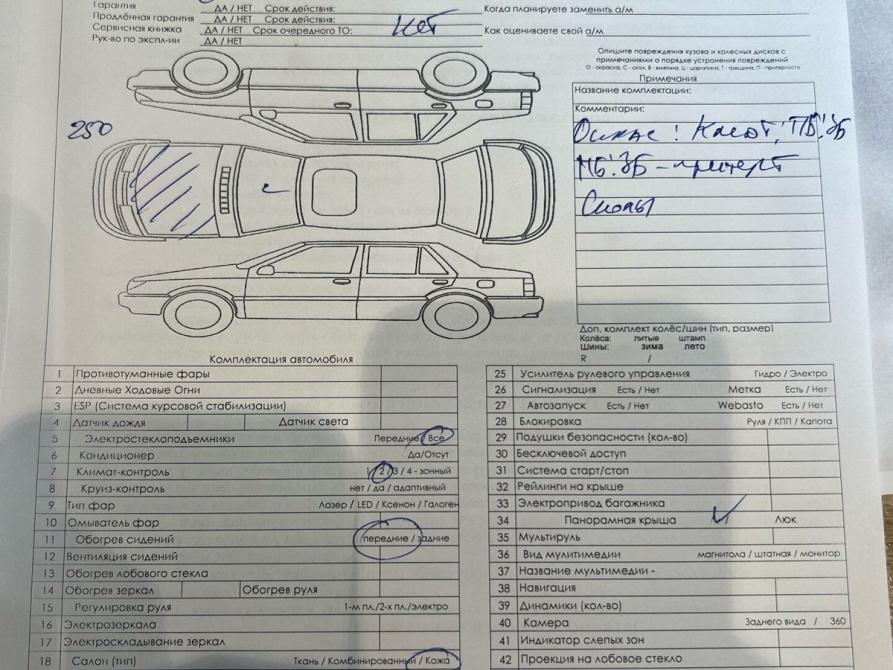 Гарантия ДА / НЕТ Срок действия:
Продлённая гарантия ДА / НЕТ Срок действия:
Сервисная книжка ДА / НЕТ Срок очередного ТО: нет
Рук-во по экспл-ии ДА / НЕТ
Когда планируете заменить а/м
Как оцениваете свой а/м
Опишите повреждения кузова и колесных дисков с
примечаниями о порядке устранения повреждений
О - окраска, С - скол, В - вмятина, Ц - царапина, Т - трещина, П - притертость
Примечания
Название комплектации:
Комментарии:
250
ПБ. ЗБ - притерт
Сколы
Доп. комплект колёс/шин (тип, размер)
Колёса: литые штамп
Шины: зима лето
R /
Комплектация автомобиля
1 Противотуманные фары
2 Дневные Ходовые Огни
3 ESP (Система курсовой стабилизации)
4 Датчик дождя Датчик света
5 Электростеклоподъемники Передние/ Все
6 Кондиционер Да/Отсут
7 Климат-контроль 2 /3 / 4 - зонный
8 Круиз-контроль нет / да / адаптивный
9 Тип фар Лазер / LED / Ксенон / Галоген
10 Омыватель фар
11 Обогрев сидений передние / задние
12 Вентиляция сидений
13 Обогрев лобового стекла
14 Обогрев зеркал Обогрев руля
15 Регулировка руля 1-м пл./2-х пл./электро
16 Электрозеркала
17 Электроскладывание зеркал
18 Салон (тип) Ткань / Комбинированный / Кожа
25 Усилитель рулевого управления Гидро / Электро
26 Сигнализация Есть / Нет Метка Есть / Нет
27 Автозапуск Есть / Нет Webasto Есть / Нет
28 Блокировка Руля / КПП / Капота
29 Подушки безопасности (кол-во)
30 Бесключевой доступ
31 Система старт/стоп
32 Рейлинги на крыше
33 Электропривод багажника
34 Панорамная крыша Люк
35 Мультируль
36 Вид мулитимедии магнитола / штатная / монитор
37 Название мультимедии -
38 Навигация
39 Динамики (кол-во)
40 Камера Заднего вида / 360
41 Индикатор слепых зон
42 Проекция на лобовое стекло